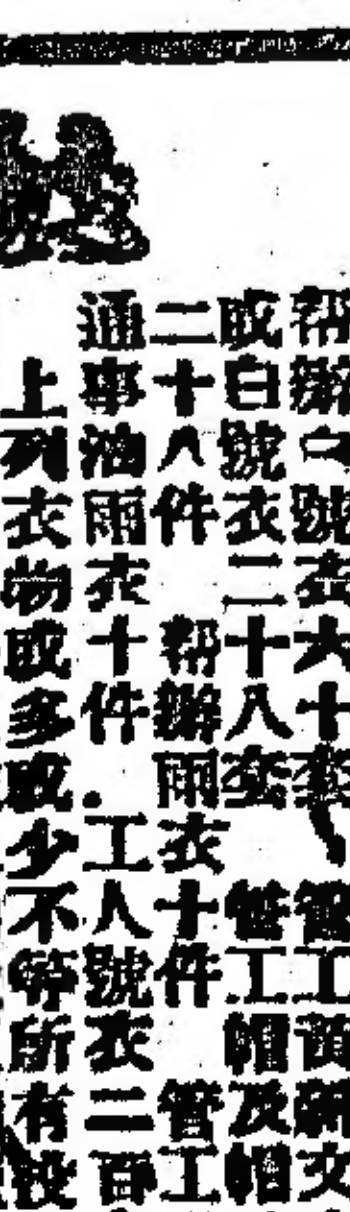 帮辦白號衣六十套 管工
或白號衣二十八套 管工帽及帽
二十八件 帮辦雨衣十件 管工
通事油雨衣十件．工人號衣二百
上列衣物或多或少不等所有投